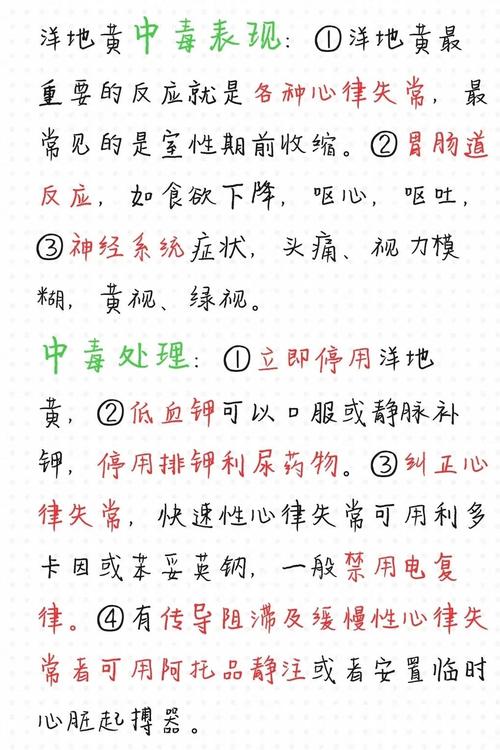 洋地黄中毒表现：①洋地黄最
重要的反应就是各种心律失常，最
常见的是室性期前收缩。②胃肠道
反应，如食欲下降，呕心，呕吐，
③神经系统症状，头痛、视力模
糊，黄视、绿视。
中毒处理：①立即停用洋地
黄，②低血钾可以口服或静脉补
钾，停用排钾利尿药物。③纠正心
律失常，快速性心律失常可用利多
卡因或苯妥英钠，一般禁用电复
律。④有传导阻滞及缓慢性心律失
常者可用阿托品静注或者安置临时
心脏起搏器。